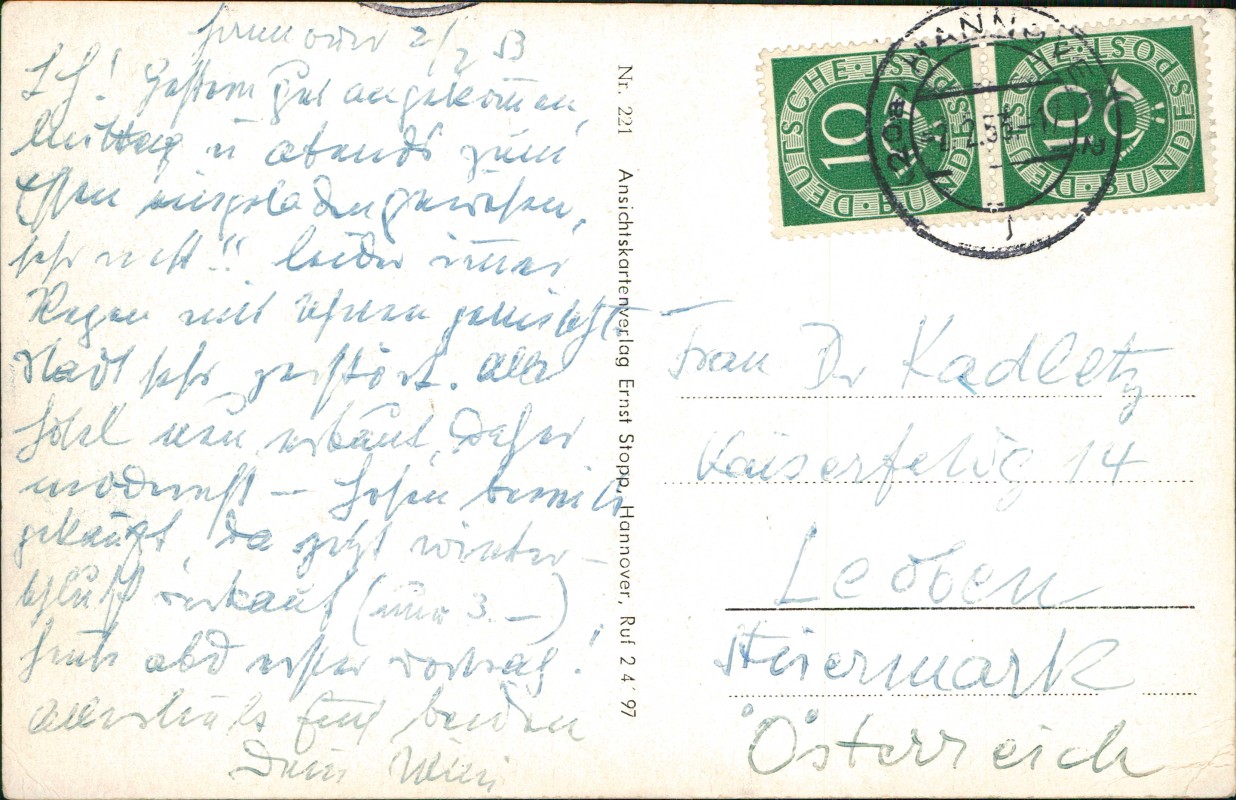 Hannover 2/2 53
LH! Gestern gut angekommen,
Mittag u abends zum
Essen eingeladen gewesen,
sehr nett!! leider immer
Regen mit Schnee gemischt,
Stadt sehr zerstört. Aber
Hotel neu erbaut, daher
modernst — Hosen bereits
gekauft, da jetzt winter-
schluß verkauf (nur 3.—)
heute abd erster vortrag!
Allerherzl. Euch beiden
Dein Willi
Nr. 221 Ansichtskartenverlag Ernst Stopp, Hannover, Ruf 2 4´97
DEUTSCHE BUNDESPOST 10
DEUTSCHE BUNDESPOST 10
(20a) HANNOVER 2
2.2.53
j
Frau Dr Kadletz
Kaiserfeldg 14
Leoben
Steiermark
Österreich